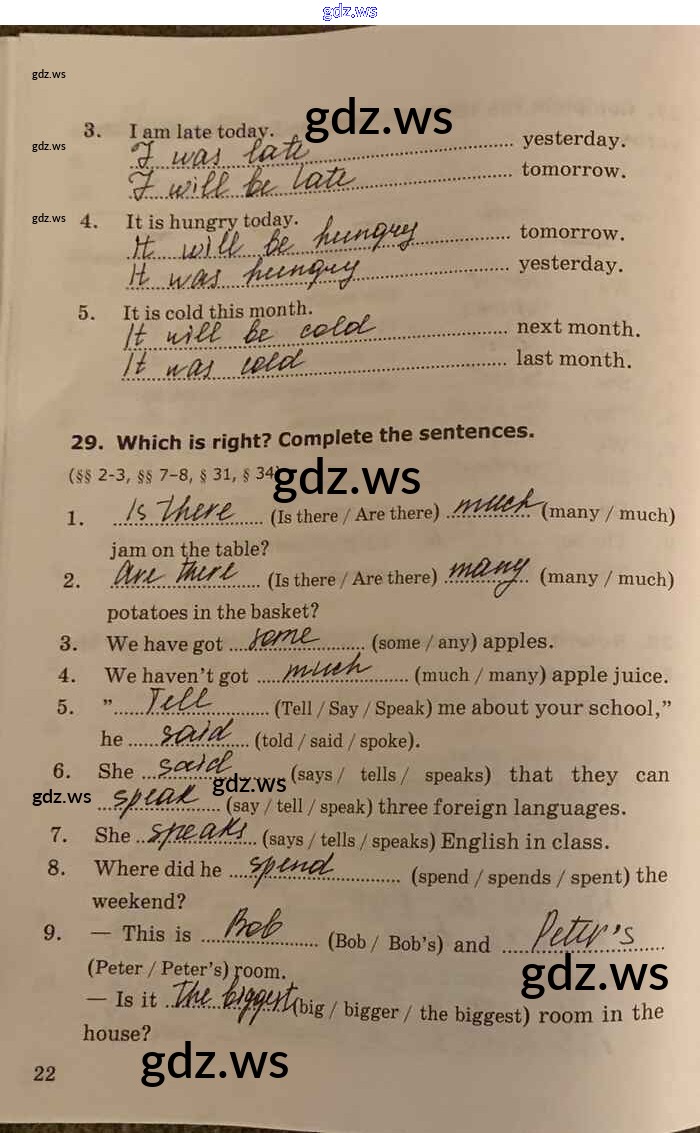 gdz.ws
gdz.ws
gdz.ws
3. I am late today.
I was late yesterday.
gdz.ws
I will be late tomorrow.
gdz.ws
4. It is hungry today.
It will be hungry tomorrow.
It was hungry yesterday.
5. It is cold this month.
It will be cold next month.
It was cold last month.
29. Which is right? Complete the sentences.
(§§ 2-3, §§ 7-8, § 31, § 34)
gdz.ws
1. Is there (Is there / Are there) much (many / much)
jam on the table?
2. Are there (Is there / Are there) many (many / much)
potatoes in the basket?
3. We have got some (some / any) apples.
4. We haven't got much (much / many) apple juice.
5. "Tell (Tell / Say / Speak) me about your school,"
he said (told / said / spoke).
6. She said (says / tells / speaks) that they can
gdz.ws
gdz.ws
speak (say / tell / speak) three foreign languages.
7. She speaks (says / tells / speaks) English in class.
8. Where did he spend (spend / spends / spent) the
weekend?
9. — This is Bob (Bob / Bob's) and Peter's
(Peter / Peter's) room.
gdz.ws
— Is it the biggest (big / bigger / the biggest) room in the
house?
gdz.ws
22